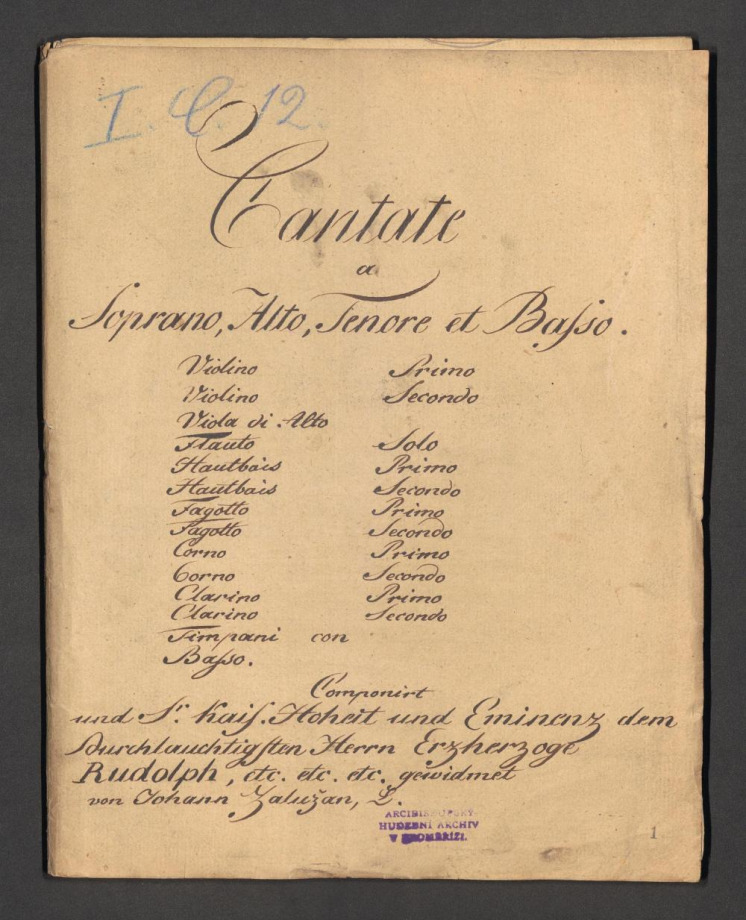 I. C. 12.
Cantate
a
Soprano, Alto, Tenore et Baſso.
Violino Primo
Violino Secondo
Viola di Alto
Flauto Solo
Hautbois Primo
Hautbois Secondo
Fagotto Primo
Fagotto Secondo
Corno Primo
Corno Secondo
Clarino Primo
Clarino Secondo
Timpani con
Baſso.
Componirt
und Sr. Kaiſ. Hoheit und Eminenz dem
Durchlauchtigſten Herrn Erzherzoge
Rudolph, etc. etc. etc. gewidmet
von Johann Zalužan,
ARCIBISKUPSKÝ
HUDEBNÍ ARCHIV
V KROMĚŘÍŽI.
1